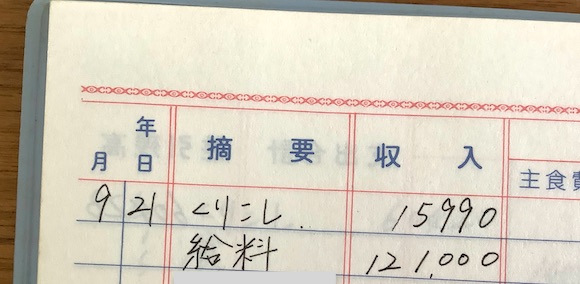 年
月 日 摘要 収入 主食費
9 21 くりこし 15990
給料 121,000